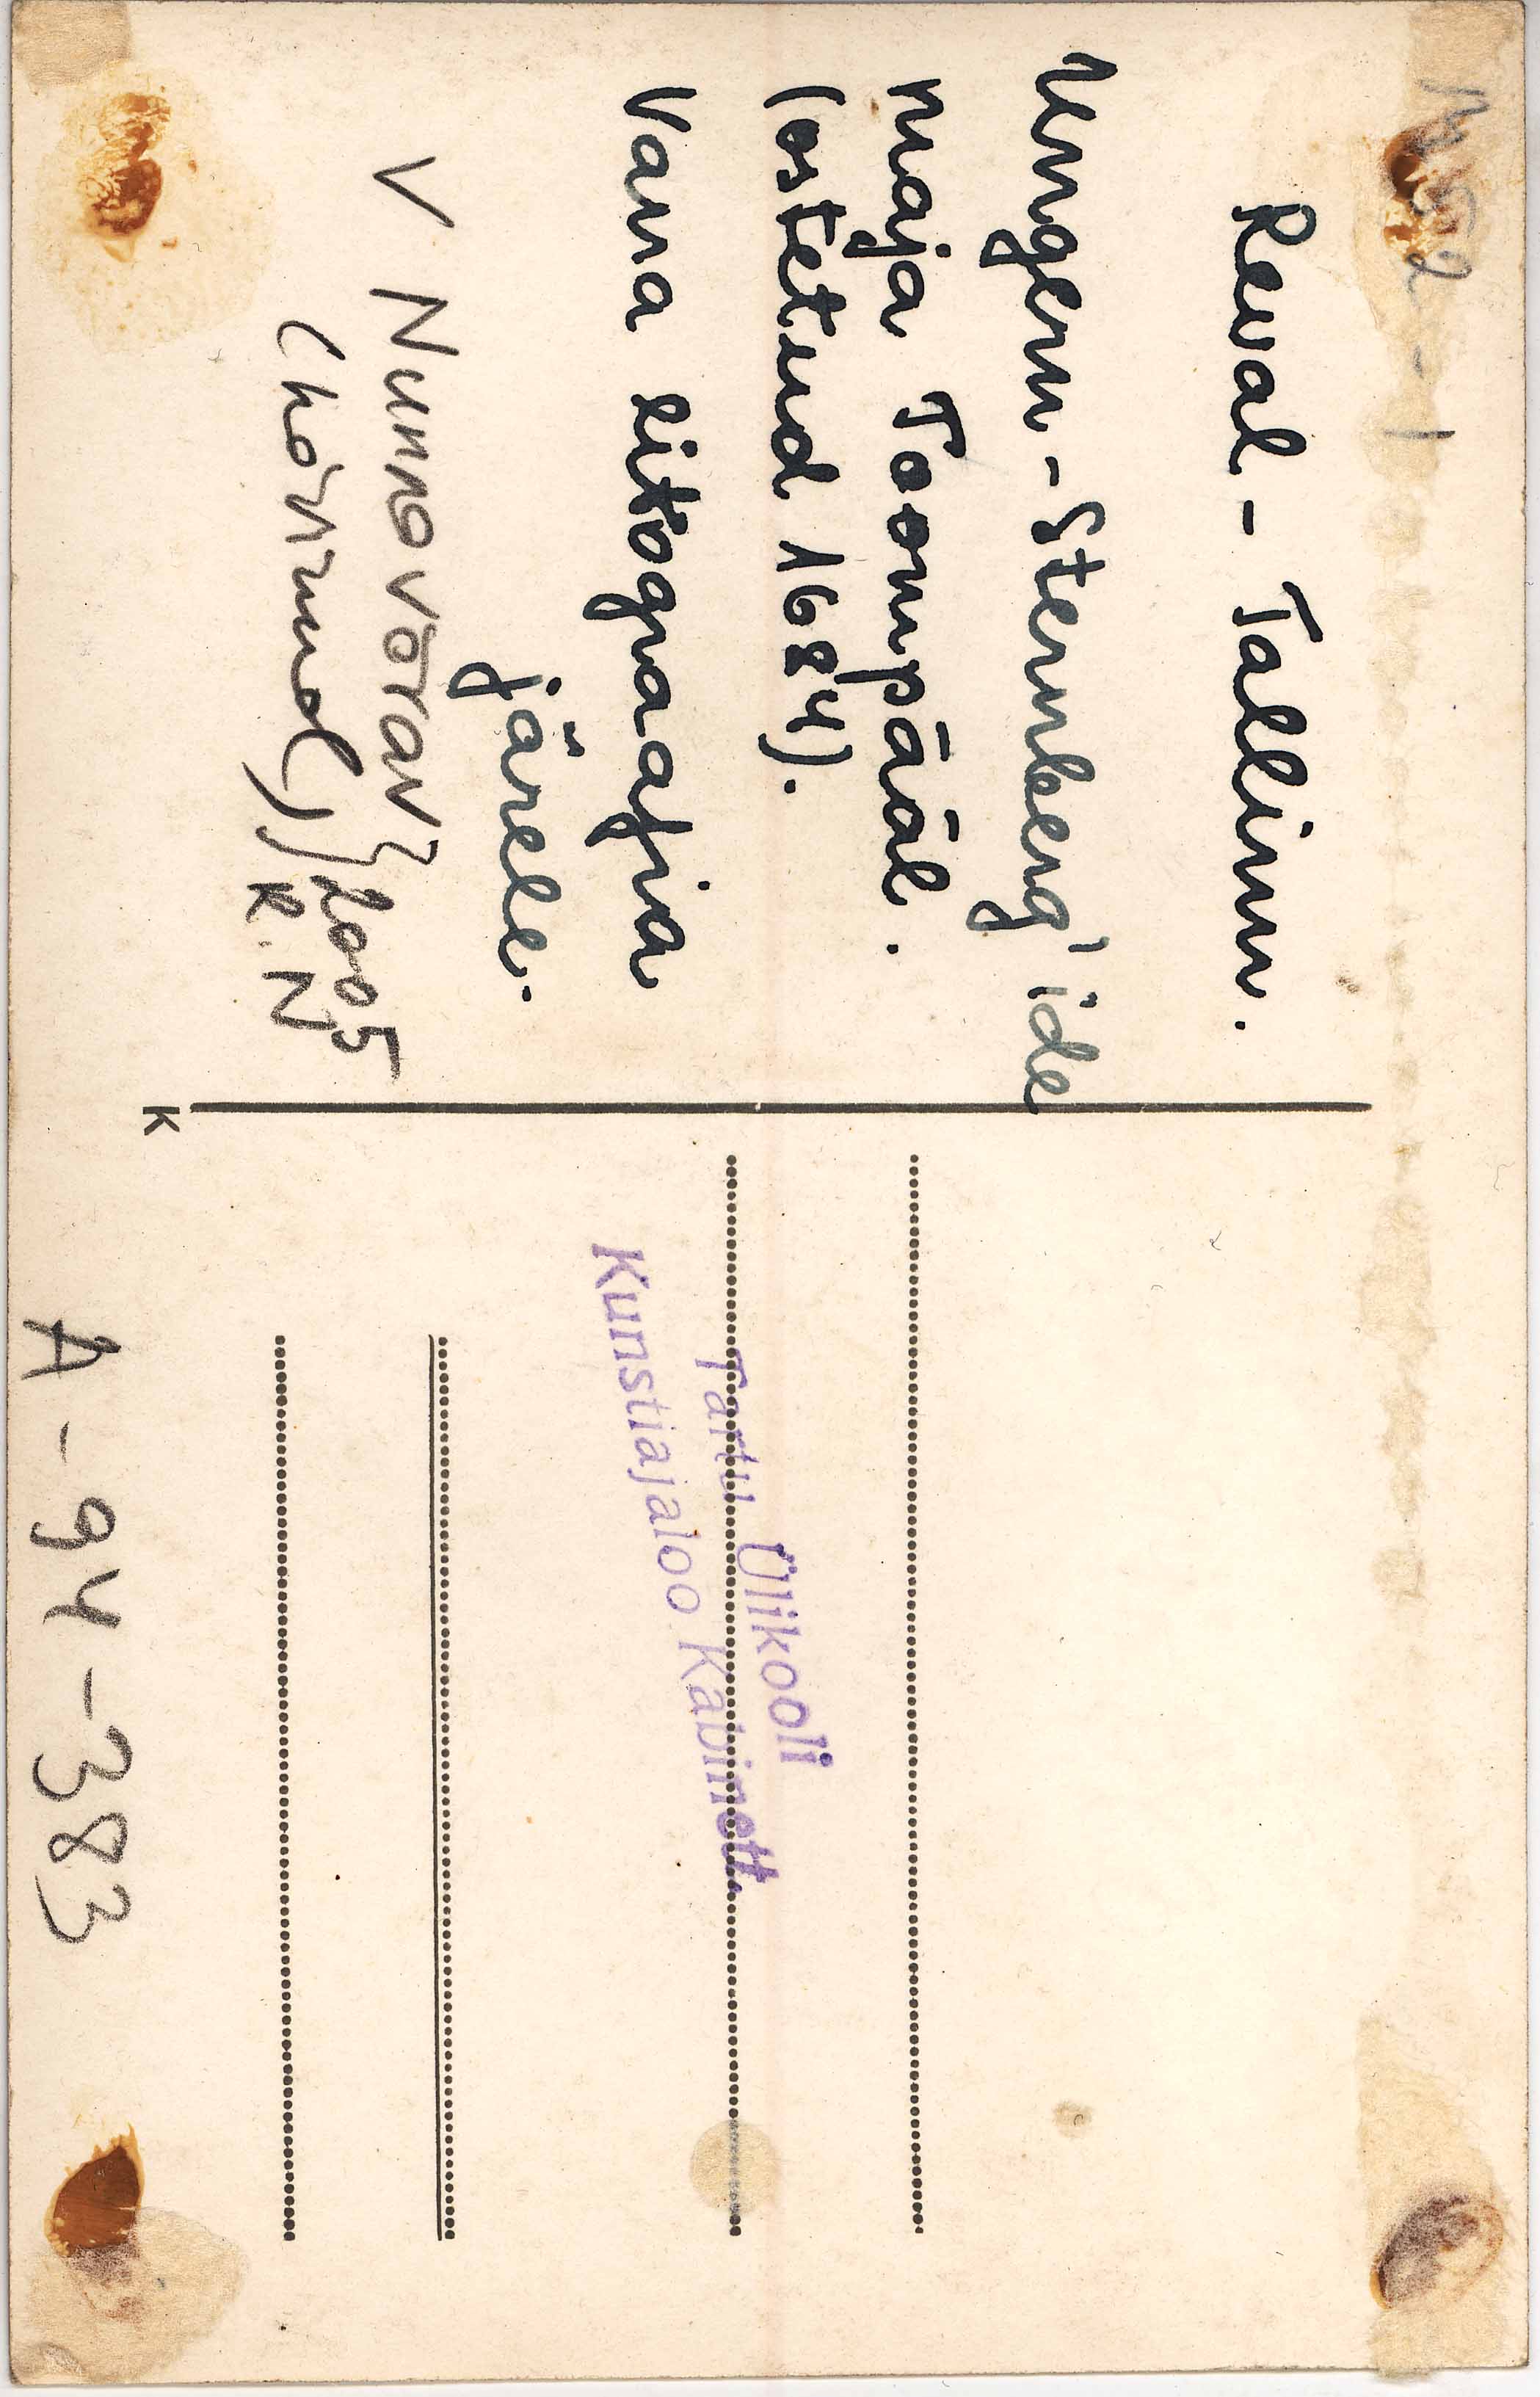 Reval - Tallinn.
Ungern-Sternberg'ide
maja Toompääl.
(ostetud 1684).
Vana litograafia
järele.
V Nunnavärav 2005
K.N
K
Tartu Ülikooli
Kunstiajaloo Kabinett.
A-94-383